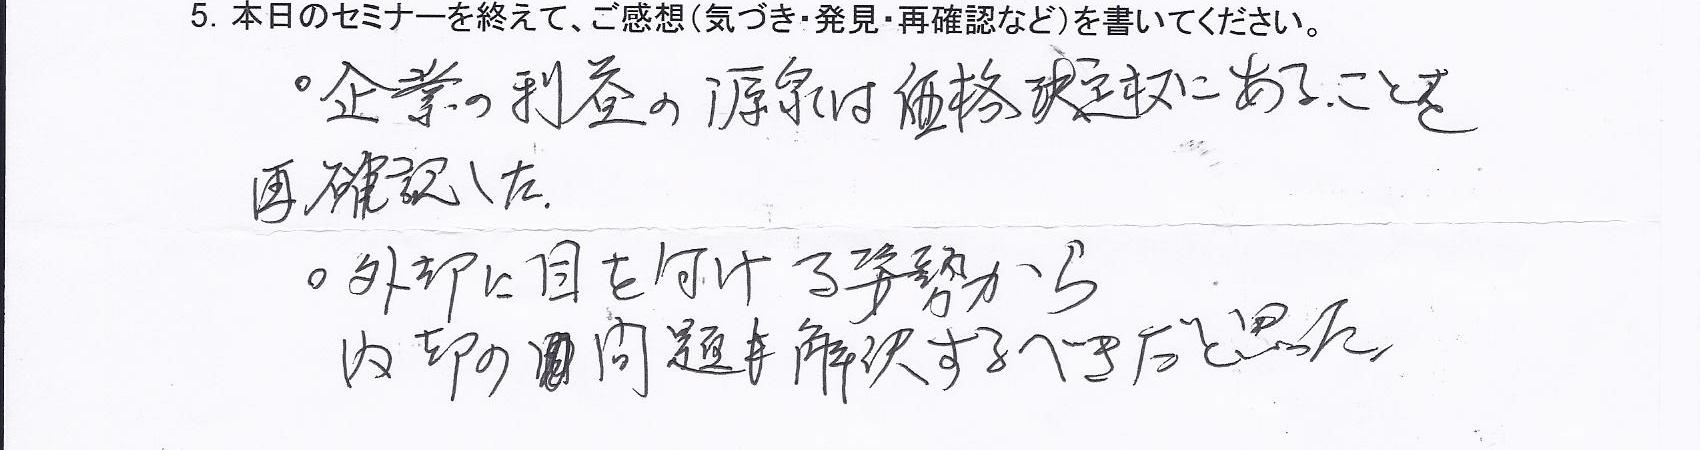 5. 本日のセミナーを終えて、ご感想(気づき・発見・再確認など)を書いてください。
。企業の利益の源泉は価格決定权にあることを
再確認した.
。外部に目を付ける姿勢から
内部の問題を解決するべきだと思った.